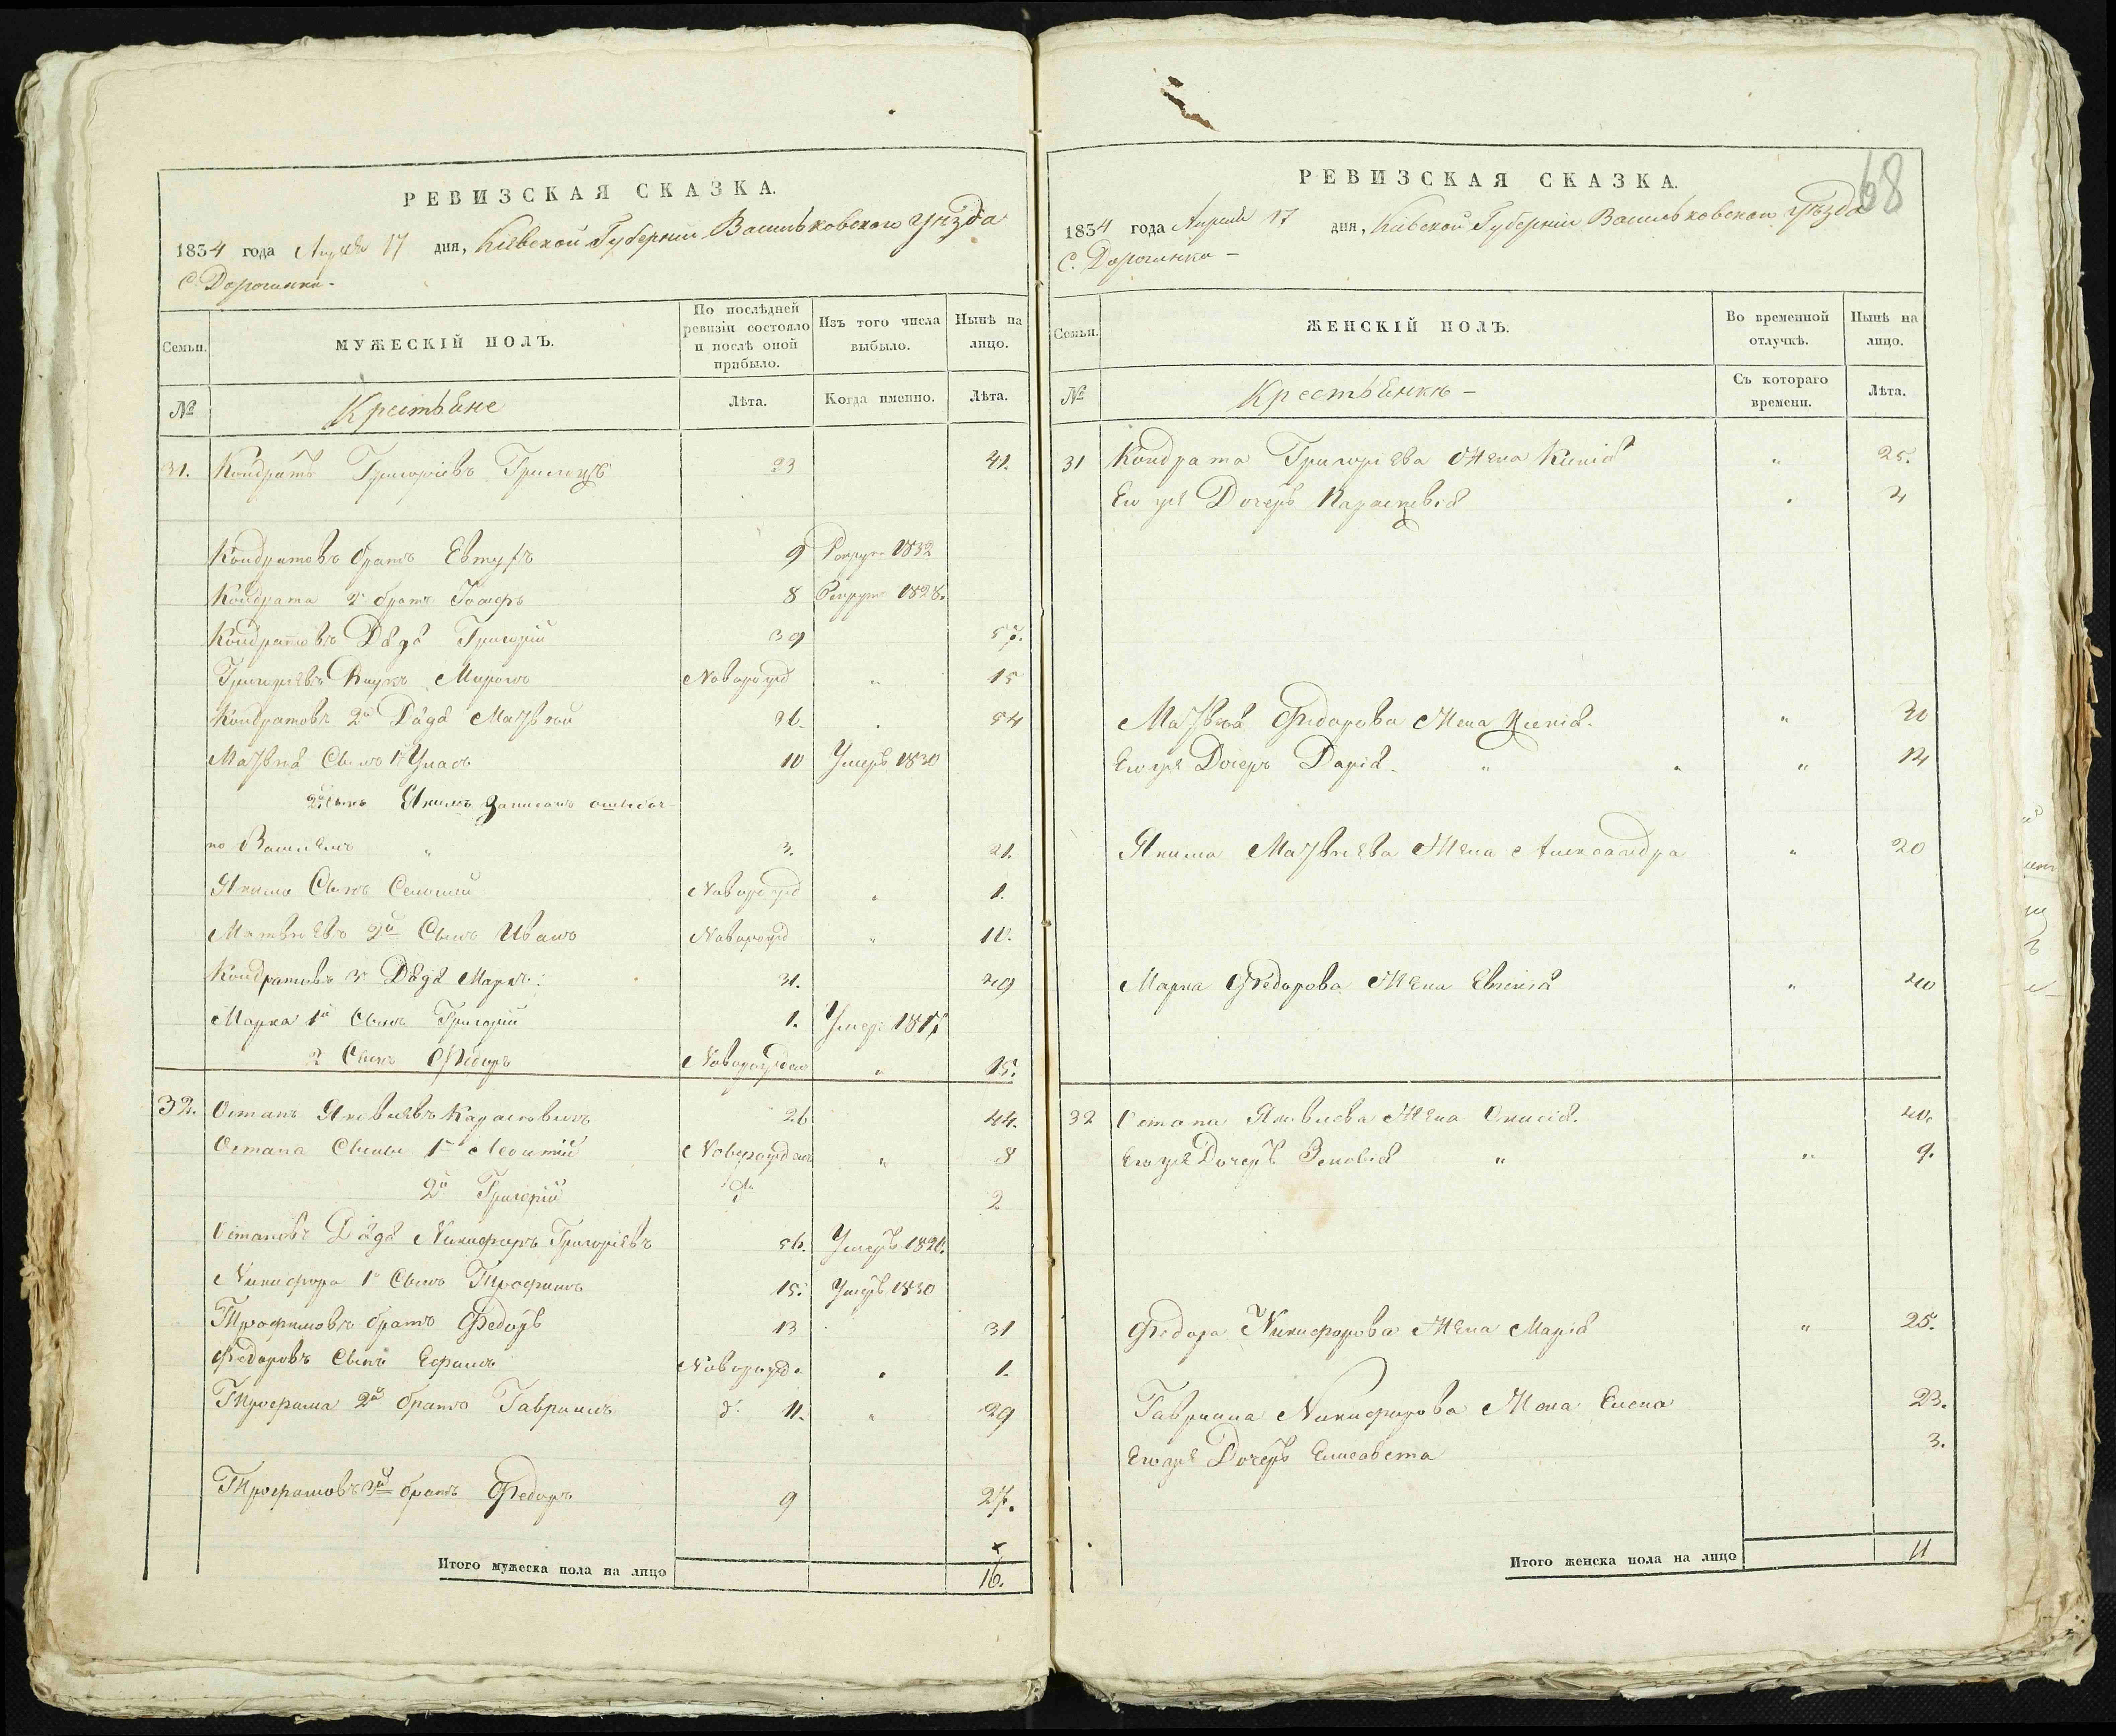 РЕВИЗСКАЯ СКАЗКА.
1834 года Апреля 17 дня, Кіевской Губерніи Васильковского уѣзда
С. Дорогинки.
Семьи.
МУЖЕСКІЙ ПОЛЪ.
По послѣдней ревизіи состояло и послѣ оной прибыло.
Изъ того числа выбыло.
Нынѣ на лицо.
№
Крестьяне
Лѣта.
Когда именно.
Лѣта.
31. Кондратъ Григоріевъ 23 41.
Кондратовъ братъ Евтухъ 9 Рекрут 1832
Кондрата 2 братъ Іосифъ 8 Рекрут 1828.
Кондратовъ Дядя Григорій 39 57.
Григоріевъ Внукъ Миронъ Новорожд " 15
Кондратовъ 2й Дядя Матвѣй 36. 54
Матвѣя Сынъ 1й Уласъ 10 Умеръ 1830
2й Сынъ Якимъ записанъ ошибоч
но Василемъ " 3. 21.
Якима Сынъ Новорожд 1.
Матвѣевъ 2й Сынъ Иванъ Новорожд " 10.
Кондратовъ 3 Дядя Марко. 31. 49
Марка 1й Сынъ Григорій 1. Умер. 1817
2 Сынъ Федоръ Новорожден " 15.
32. Остапъ Яковлевъ 26 44.
Остапа Сыны 1 Леонтій Новорожден " 8
2й Григорій 2
Остаповъ Дядя Никифоръ Григоріевъ 56. Умеръ 1826.
Никифора 1 Сынъ Трофимъ 15. Умеръ 1830
Трофимовъ братъ Федоръ 13 31
Федоровъ Сынъ Ефимъ Новорожд. 1.
Трофима 2й братъ Гаврилъ 11. " 29
Трофимовъ 3й братъ Федоръ 9 27.
Итого мужеска пола на лицо 16.
68
РЕВИЗСКАЯ СКАЗКА.
1834 года Апреля 17 дня, Кіевской Губерніи Васильковского уѣзда
С. Дорогинки
Семьи.
ЖЕНСКІЙ ПОЛЪ.
Во временной отлучкѣ.
Нынѣ на лицо.
№
Крестьянкѣ
Съ котораго времени.
Лѣта.
31 Кондрата Григоріева Жена Ксенія " 25.
Его же Дочерь Параскевія 4
Матвѣя Федорова Жена Ксенія. " 30
Его же Дочерь Дарія. " " 14
Якима Матвѣева Жена Александра " 20
Марка Федорова Жена Евгенія " 40
32 Остапа Яковлева Жена Онисія. 40.
Его же Дочерь Зеновія " " 9.
Федора Никифорова Жена Марія " 25.
Гаврила Никифорова Жена Елена 23.
Его же Дочерь Елисавета 3.
Итого женска пола на лицо 11